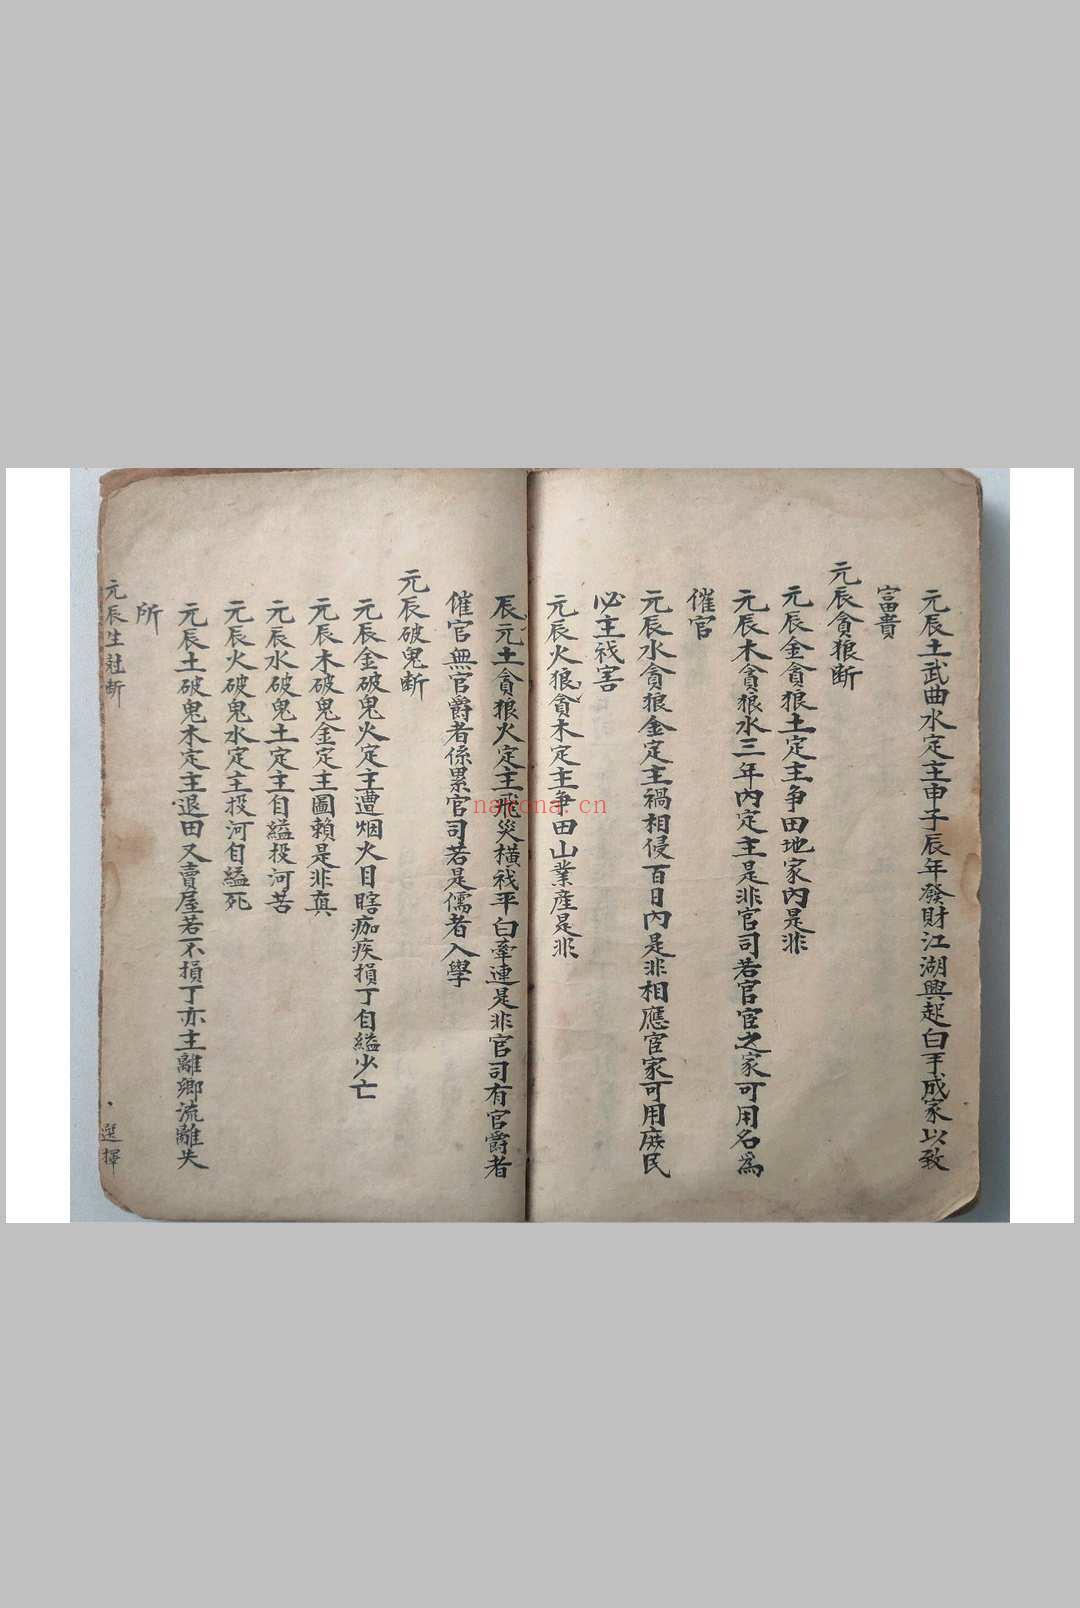 元辰土武曲水定主申子辰年發財江湖興起白手成家以致
富貴
元辰貪狼斷
元辰金貪狼土定主争田地家内是非
元辰木貪狼水三年内定主是非官司若官宦之家可用名爲
催官
元辰水貪狼金定主禍相侵百日内是非相應宦家可用庶民
必主戕害
元辰火狼貪木定主争田山業產是非
辰元土貪狼火定主飛災橫戕平白牽連是非官司有官爵者
催官無官爵者係累官司若是儒者入學
元辰破鬼斷
元辰金破鬼火定主遭烟火目瞎痂疾損丁自縊少亡
元辰木破鬼金定主圖賴是非真
元辰水破鬼土定主自縊投河苦
元辰火破鬼水定主投河自縊死
元辰土破鬼木定主退田又賣屋若不損丁亦主離鄉流離失
所
元辰生尅斷
選擇
nayona.cn